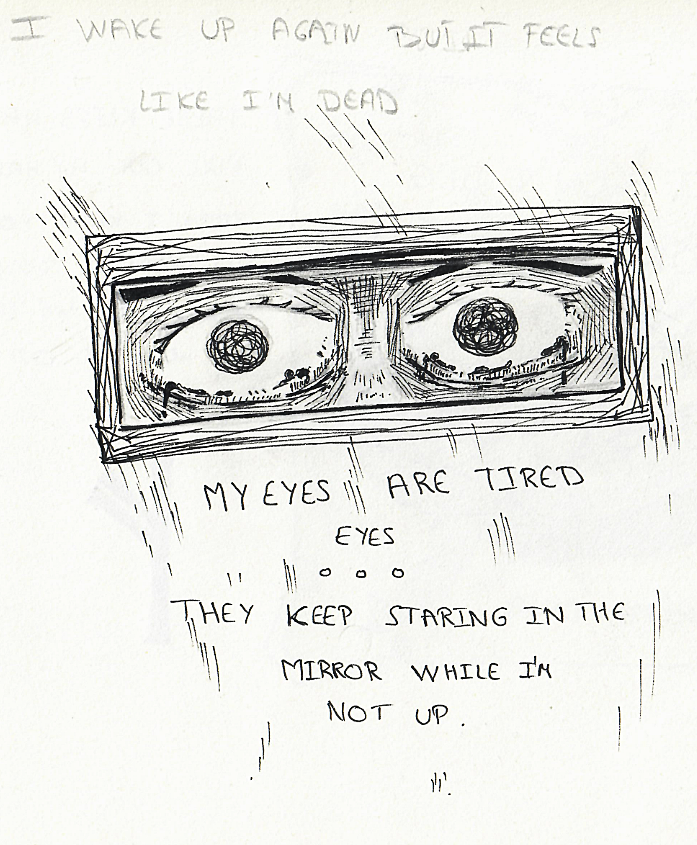 I WAKE UP AGAIN BUT IT FEELS
LIKE I'M DEAD
MY EYES ARE TIRED
EYES
THEY KEEP STARING IN THE
MIRROR WHILE I'M
NOT UP.